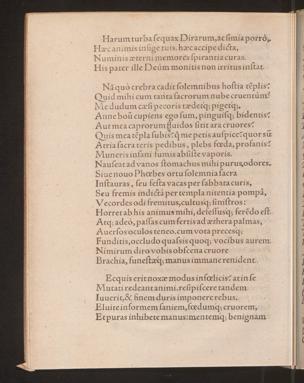 Harum turba sequax Dirarum, ac simia porrò,
Hæc animis infige tuis. hæc accipe dicta,
Numinis æterni memores spirantia curas.
His pater ille Deûm monitis non irritus instat.
Nã quò crebra cadit solemnibus hostia tẽplis?
Quid mihi cum tanta sacrorum nube cruentûm?
Me dudum cæsi pecoris tædetq; pigetq;.
Anne boũ cupiens ego sum, pinguisq; bidentis?
Aut mea caprorum fluidos sitit ara cruores?
Quis mea tẽpla subis? q̃ me petis auspice? quor sũ
Atria sacra teris pedibus, plebs fœda, profanis?
Muneris insani fumus abusiste vaporis.
Nauseat ad vanos stomachus mihi purus, odores.
Siue nouo Phœbes ortu solemnia sacra
Instauras, seu festa vacas per sabbata curis,
Seu fremis indictis per templa nitentia pompá,
Vecordes odi fremitus, cultusq; sinistros:
Horret ab his animus mihi, defessusq; ferẽdo est.
Atq; adeò, passas cum fertis ad æthera palmas,
Auersos oculos teneo. cum vota precesq;
Funditis, occludo quasso quoq; vocibus aurem.
Nimirum diro vobis obscena cruore
Brachia, funestæq; manus immane renident.
Ecquis erit noxæ modus infœlicis? at in se
Mutati redeant animi. resipiscere tandem
Iuuerit, & finem duris imponere rebus.
Eluite informem saniem, fœdumq; cruorem,
Et puras inhibete manus: mentemq; benignam